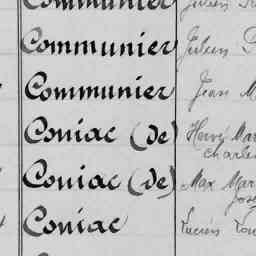 Communier
Communier Julien
Communier Jean
Coniac (De) Henri Mar
Charles
Coniac (De) Max Mar
Jose
Coniac Lucien Lou